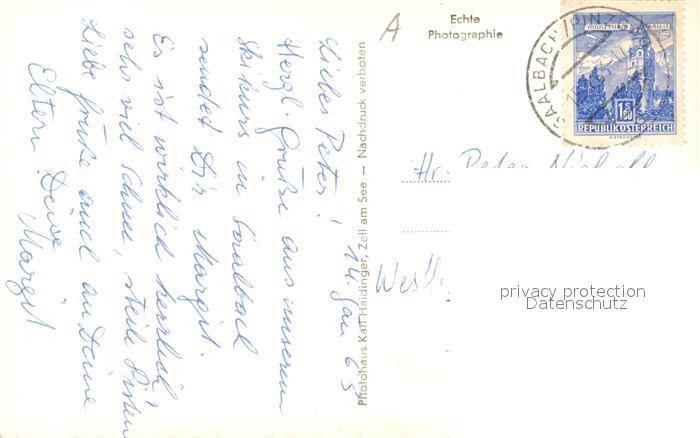 Echte
Photographie
A
SAALBACH
1.80
REPUBLIK ÖSTERREICH
Liebes Peter!
14. Jan 65
Herzl. Grüße aus unserem
Skikurs in Saalbach
sendet Dir Margit.
Es ist wirklich herrlich!
sehr viel Schnee, steile Pisten
Liebe Grüße auch an Deine
Eltern Deine
Margit
Photohaus Karl Haidinger, Zell am See — Nachdruck verboten
Hr.
privacy protection
Datenschutz